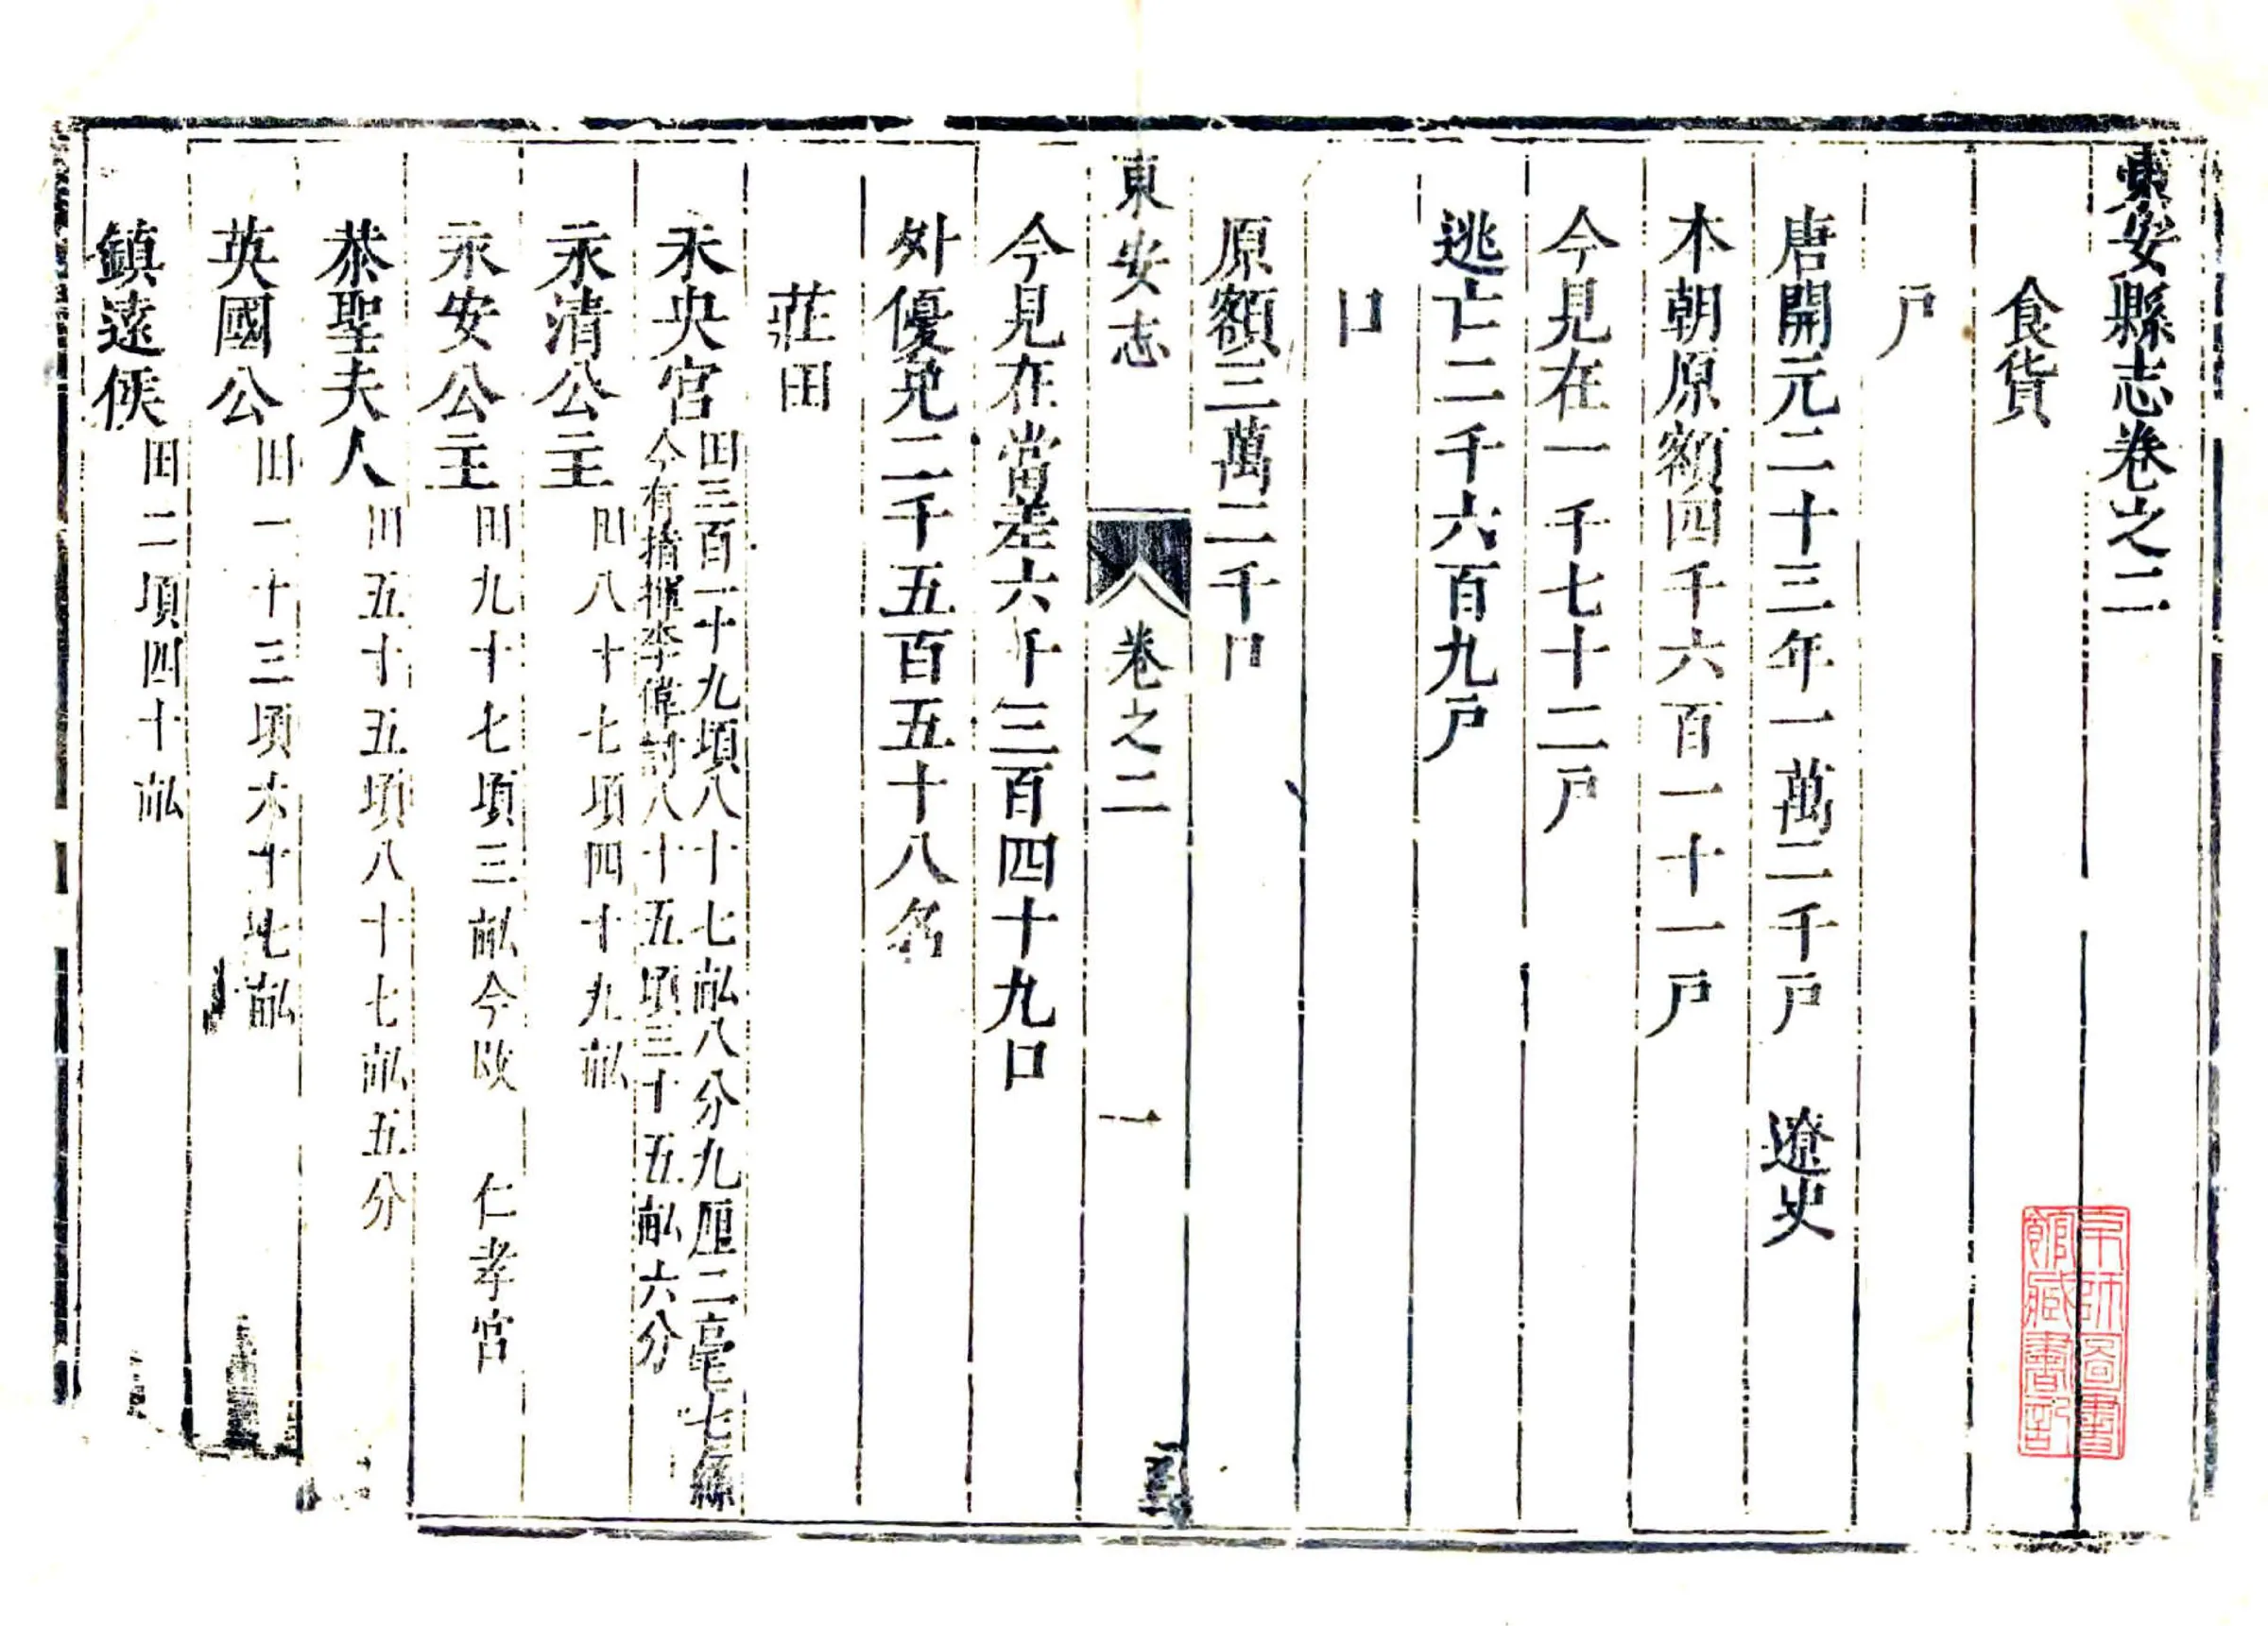 東安縣志卷之二
食貨
戶
唐開元二十三年一萬二千戶 遼史
本朝原額四千六百一十一戶
今見在一千七十二戶
逃亡二千六百九戶
口
原額三萬二千口
東安志 卷之二 一
今見在當差六千三百四十九口
外優免二千五百五十八名
莊田
未央宮田三百一十九頃八十七畝八分九厘二毫七絲
今有指揮李偉討八十五頃三十五畝六分
永清公主田八十七頃四十九畝
永安公主田九十七頃三畝今改 仁孝宮
恭聖夫人田五十五頃八十七畝五分
英國公田一十三頃六十七畝
鎮遠侯田二頃四十畝
京師圖書
館藏書記